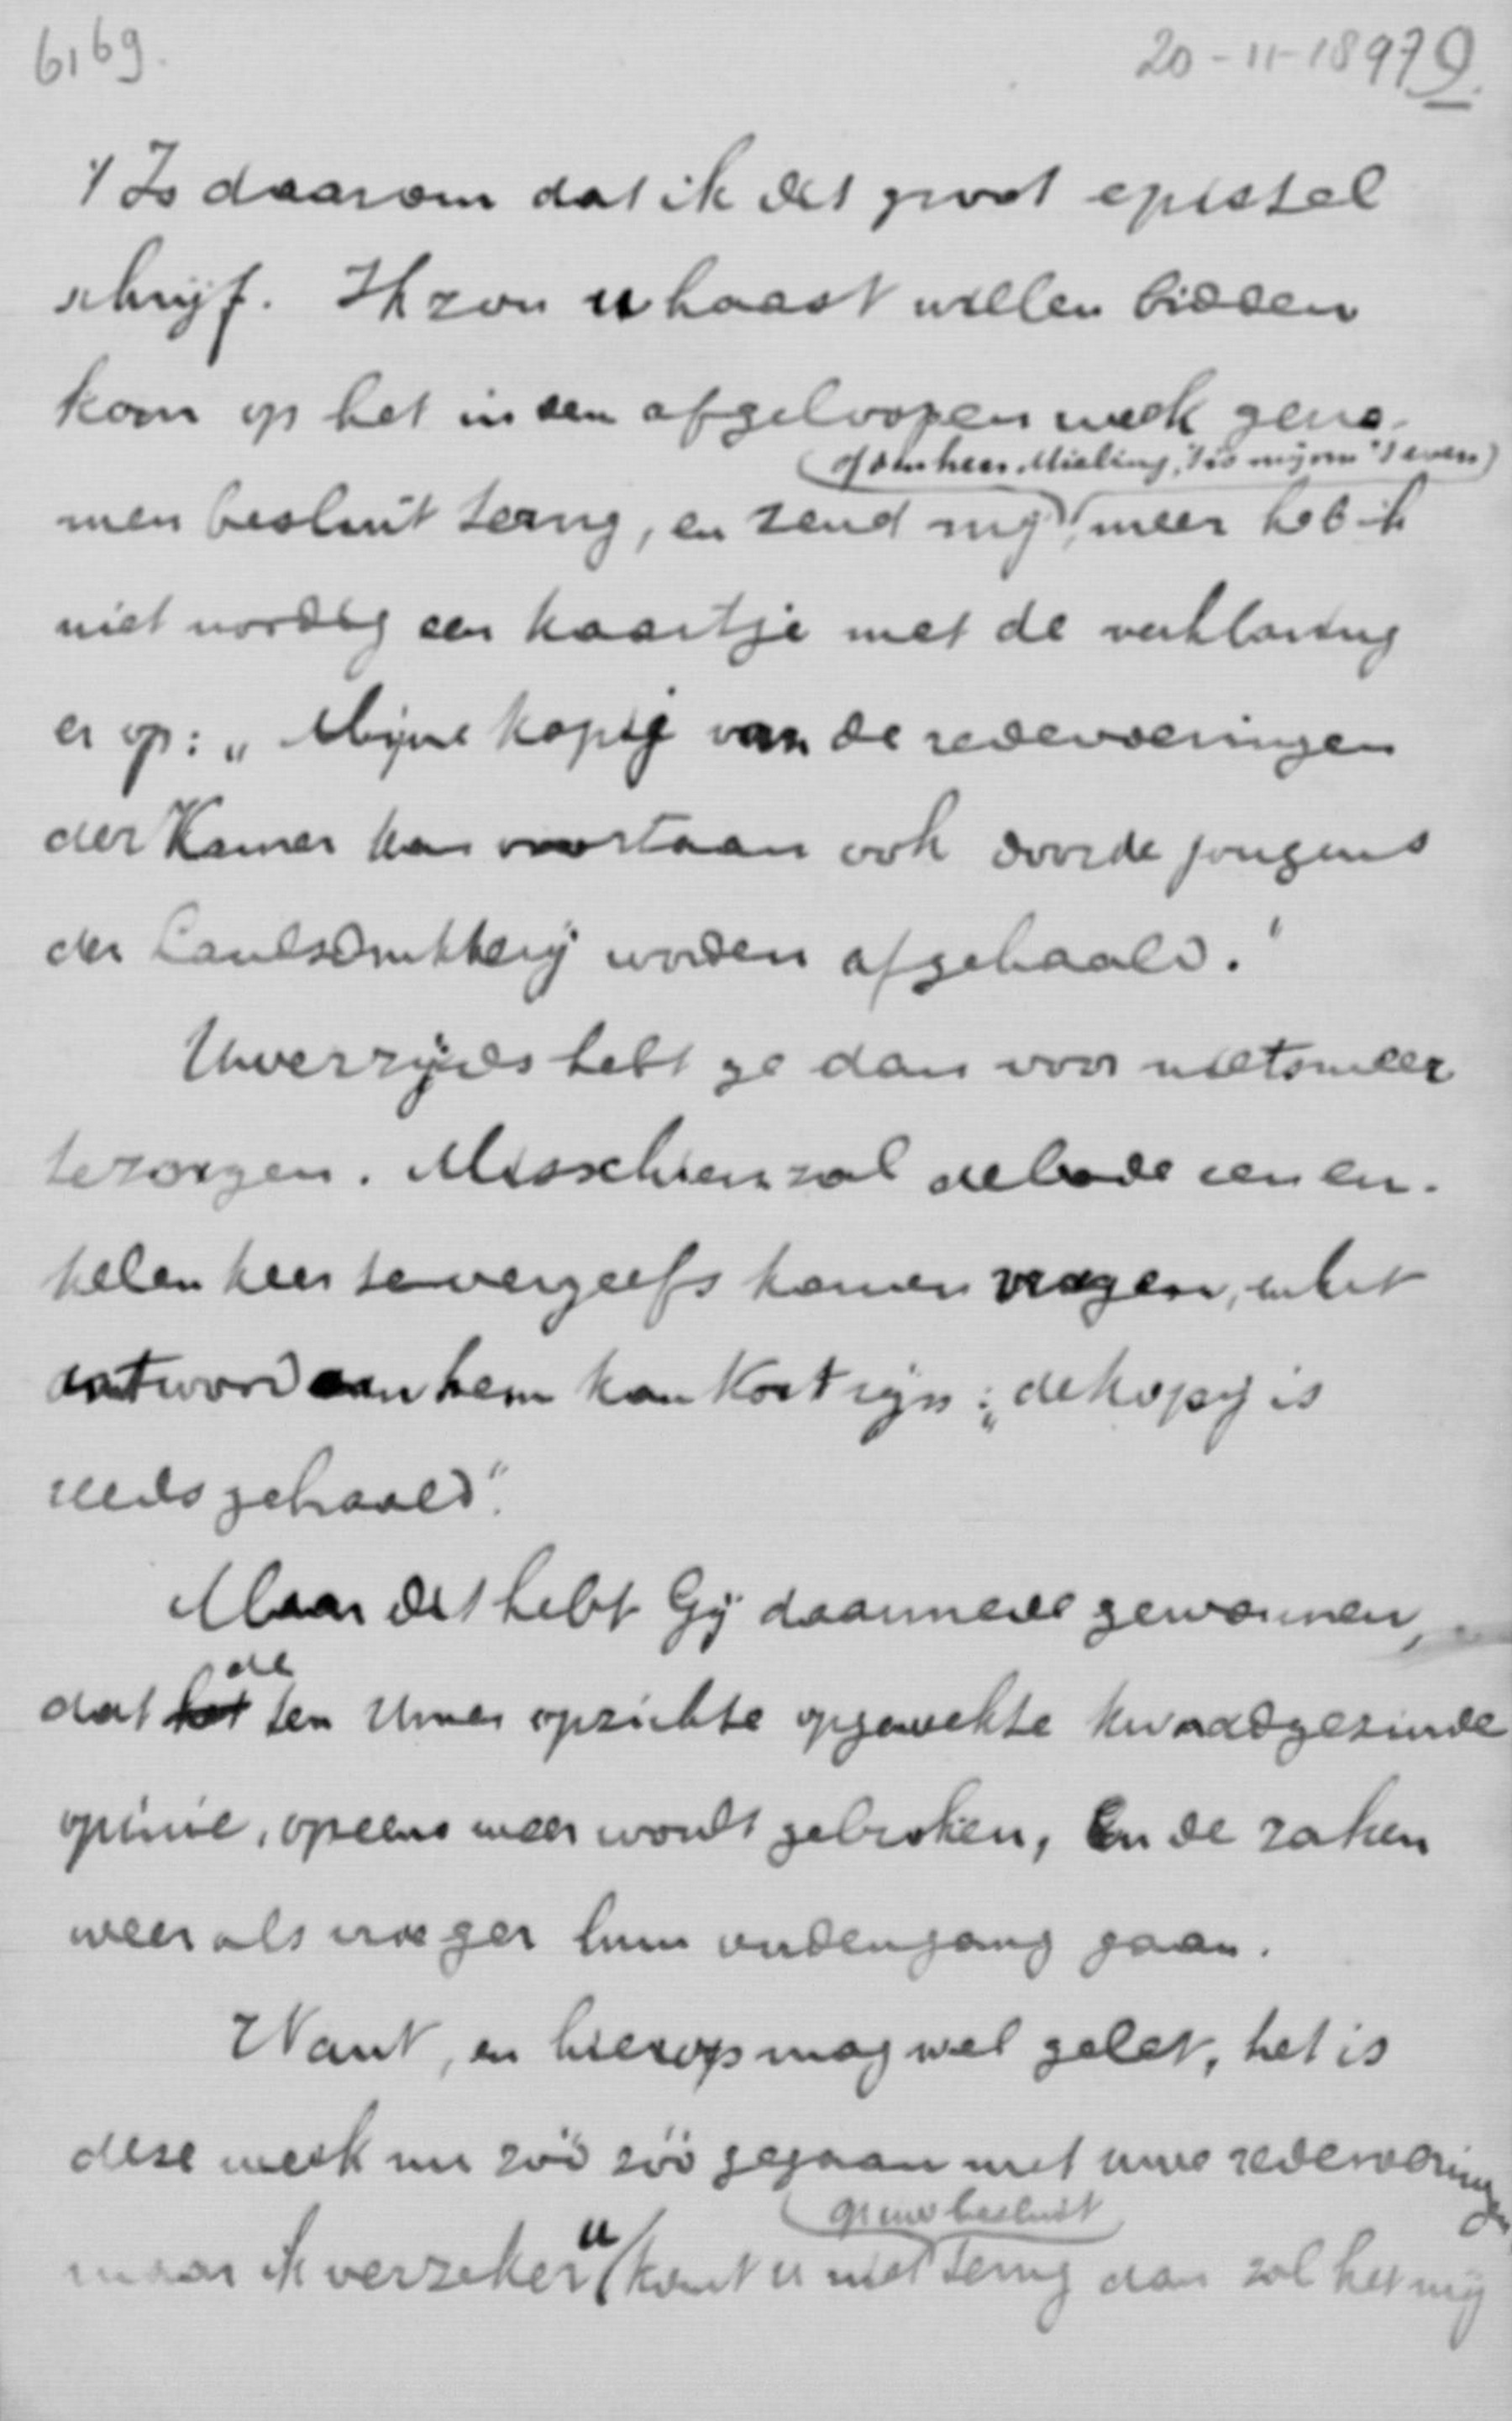 6169.
20-11-1897 9.
't Is daarom dat ik dit groot epistel
schrijf. Ik zou u haast willen bidden
kom op het in den afgeloopen week geno-
(of den heer Mieling, 't is mij om 't even)
men besluit terug, en zend mij, meer heb ik
niet noodig een kaartje met de verklaring
er op: „Mijne kopij van de redevoeringen
der Kamer kan voortaan ook door de jongens
der Landsdrukkerij worden afgehaald."
Uwerzijds hebt ge dan voor niets meer
te zorgen. Misschien zal de bode een en-
kelen keer te vergeefs komen vragen, en het
antwoord aan hem kan kort zijn: „de kopij is
reeds gehaald".
Maar dit hebt Gij daarmede gewonnen,
de
dat het ten Uwer opzichte opgewekte kwaadgezinde
opinie, opeens weer wordt gebroken, en de zaken
weer als vroeger hun ouden gang gaan.
Want, en hierop mag wel gelet, het is
deze week nu zóó zóó gegaan met uwe redevoeringen
op uw besluit
maar ik verzeker u (komt u niet terug dan zal het mij